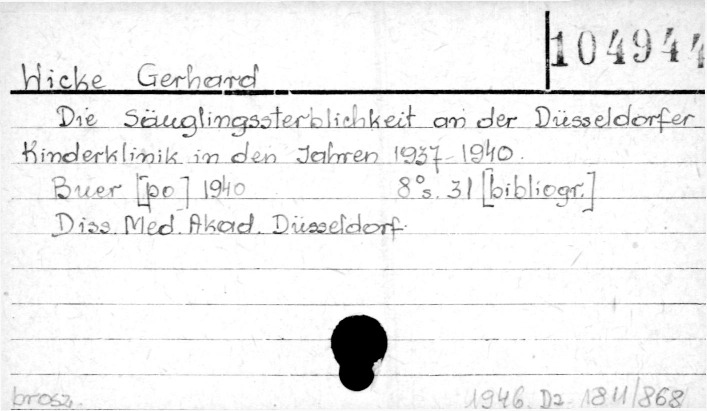 104944
Wicke Gerhard
Die Säuglingssterblichkeit an der Düsseldorfer
Kinderklinik in den Jahren 1937-1940.
Buer [po] 1940 8° s. 31 [bibliogr.]
Diss. Med. Akad. Düsseldorf.
brosz. 1946 Dz. 1811/868